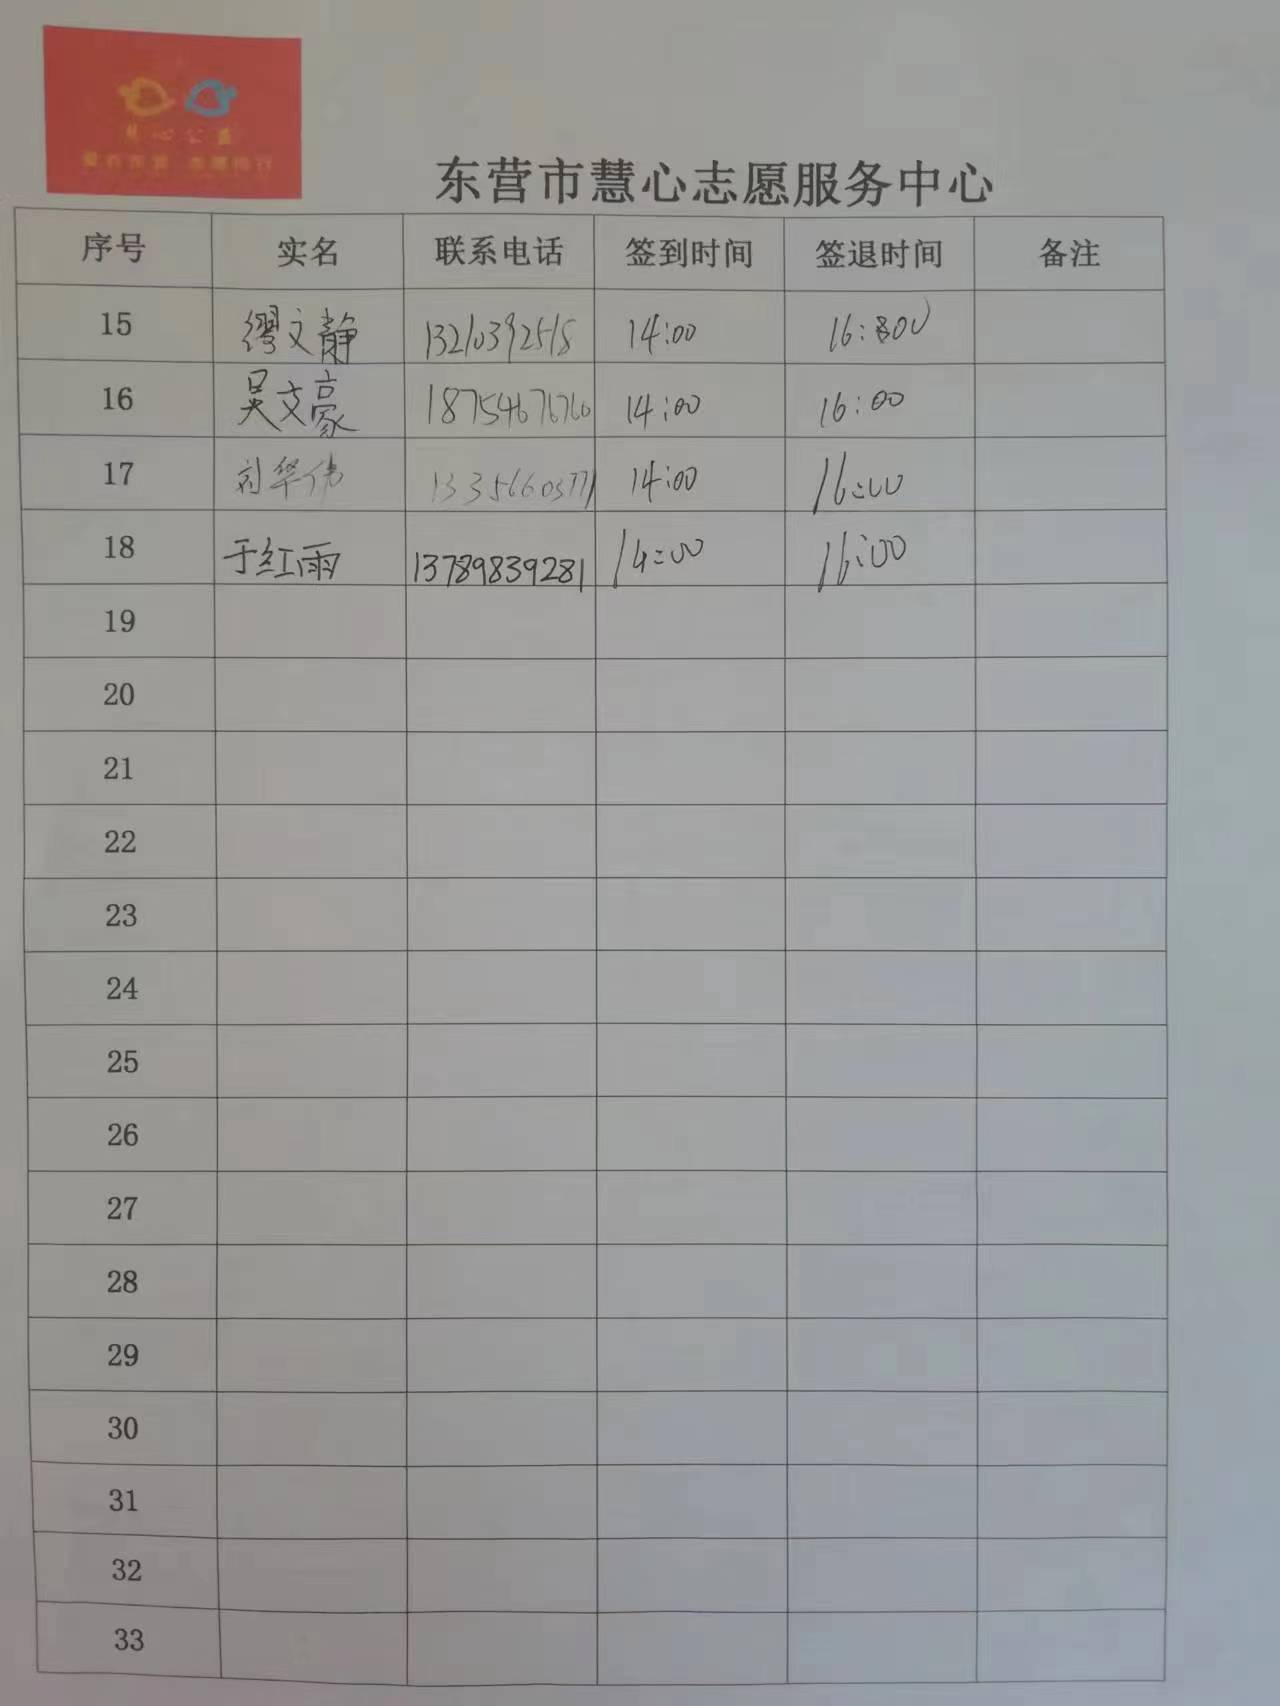 慧心公益
东营市慧心志愿服务中心
序号 实名 联系电话 签到时间 签退时间 备注
15 缪文静 13210392518 14:00 16:00
16 吴文豪 18754676760 14:00 16:00
17 刘华伟 14:00 16:00
18 于红雨 13789839281 14:00 16:00
19
20
21
22
23
24
25
26
27
28
29
30
31
32
33